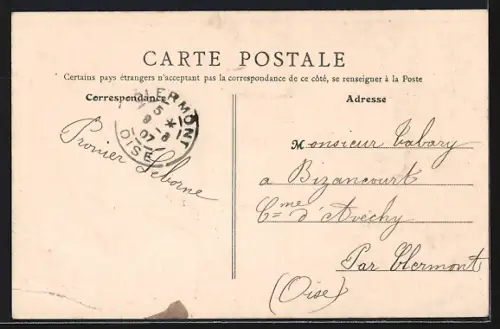 CARTE POSTALE
Certains pays étrangers n'acceptant pas la correspondance de ce côté, se renseigner à la Poste
Correspondance
Adresse
CLERMONT
5
8 * 8
07
OISE
Pronier Leborne
Monsieur Cabary
a Bizancourt
Cme d'Avéchy
Par Clermont
(Oise)